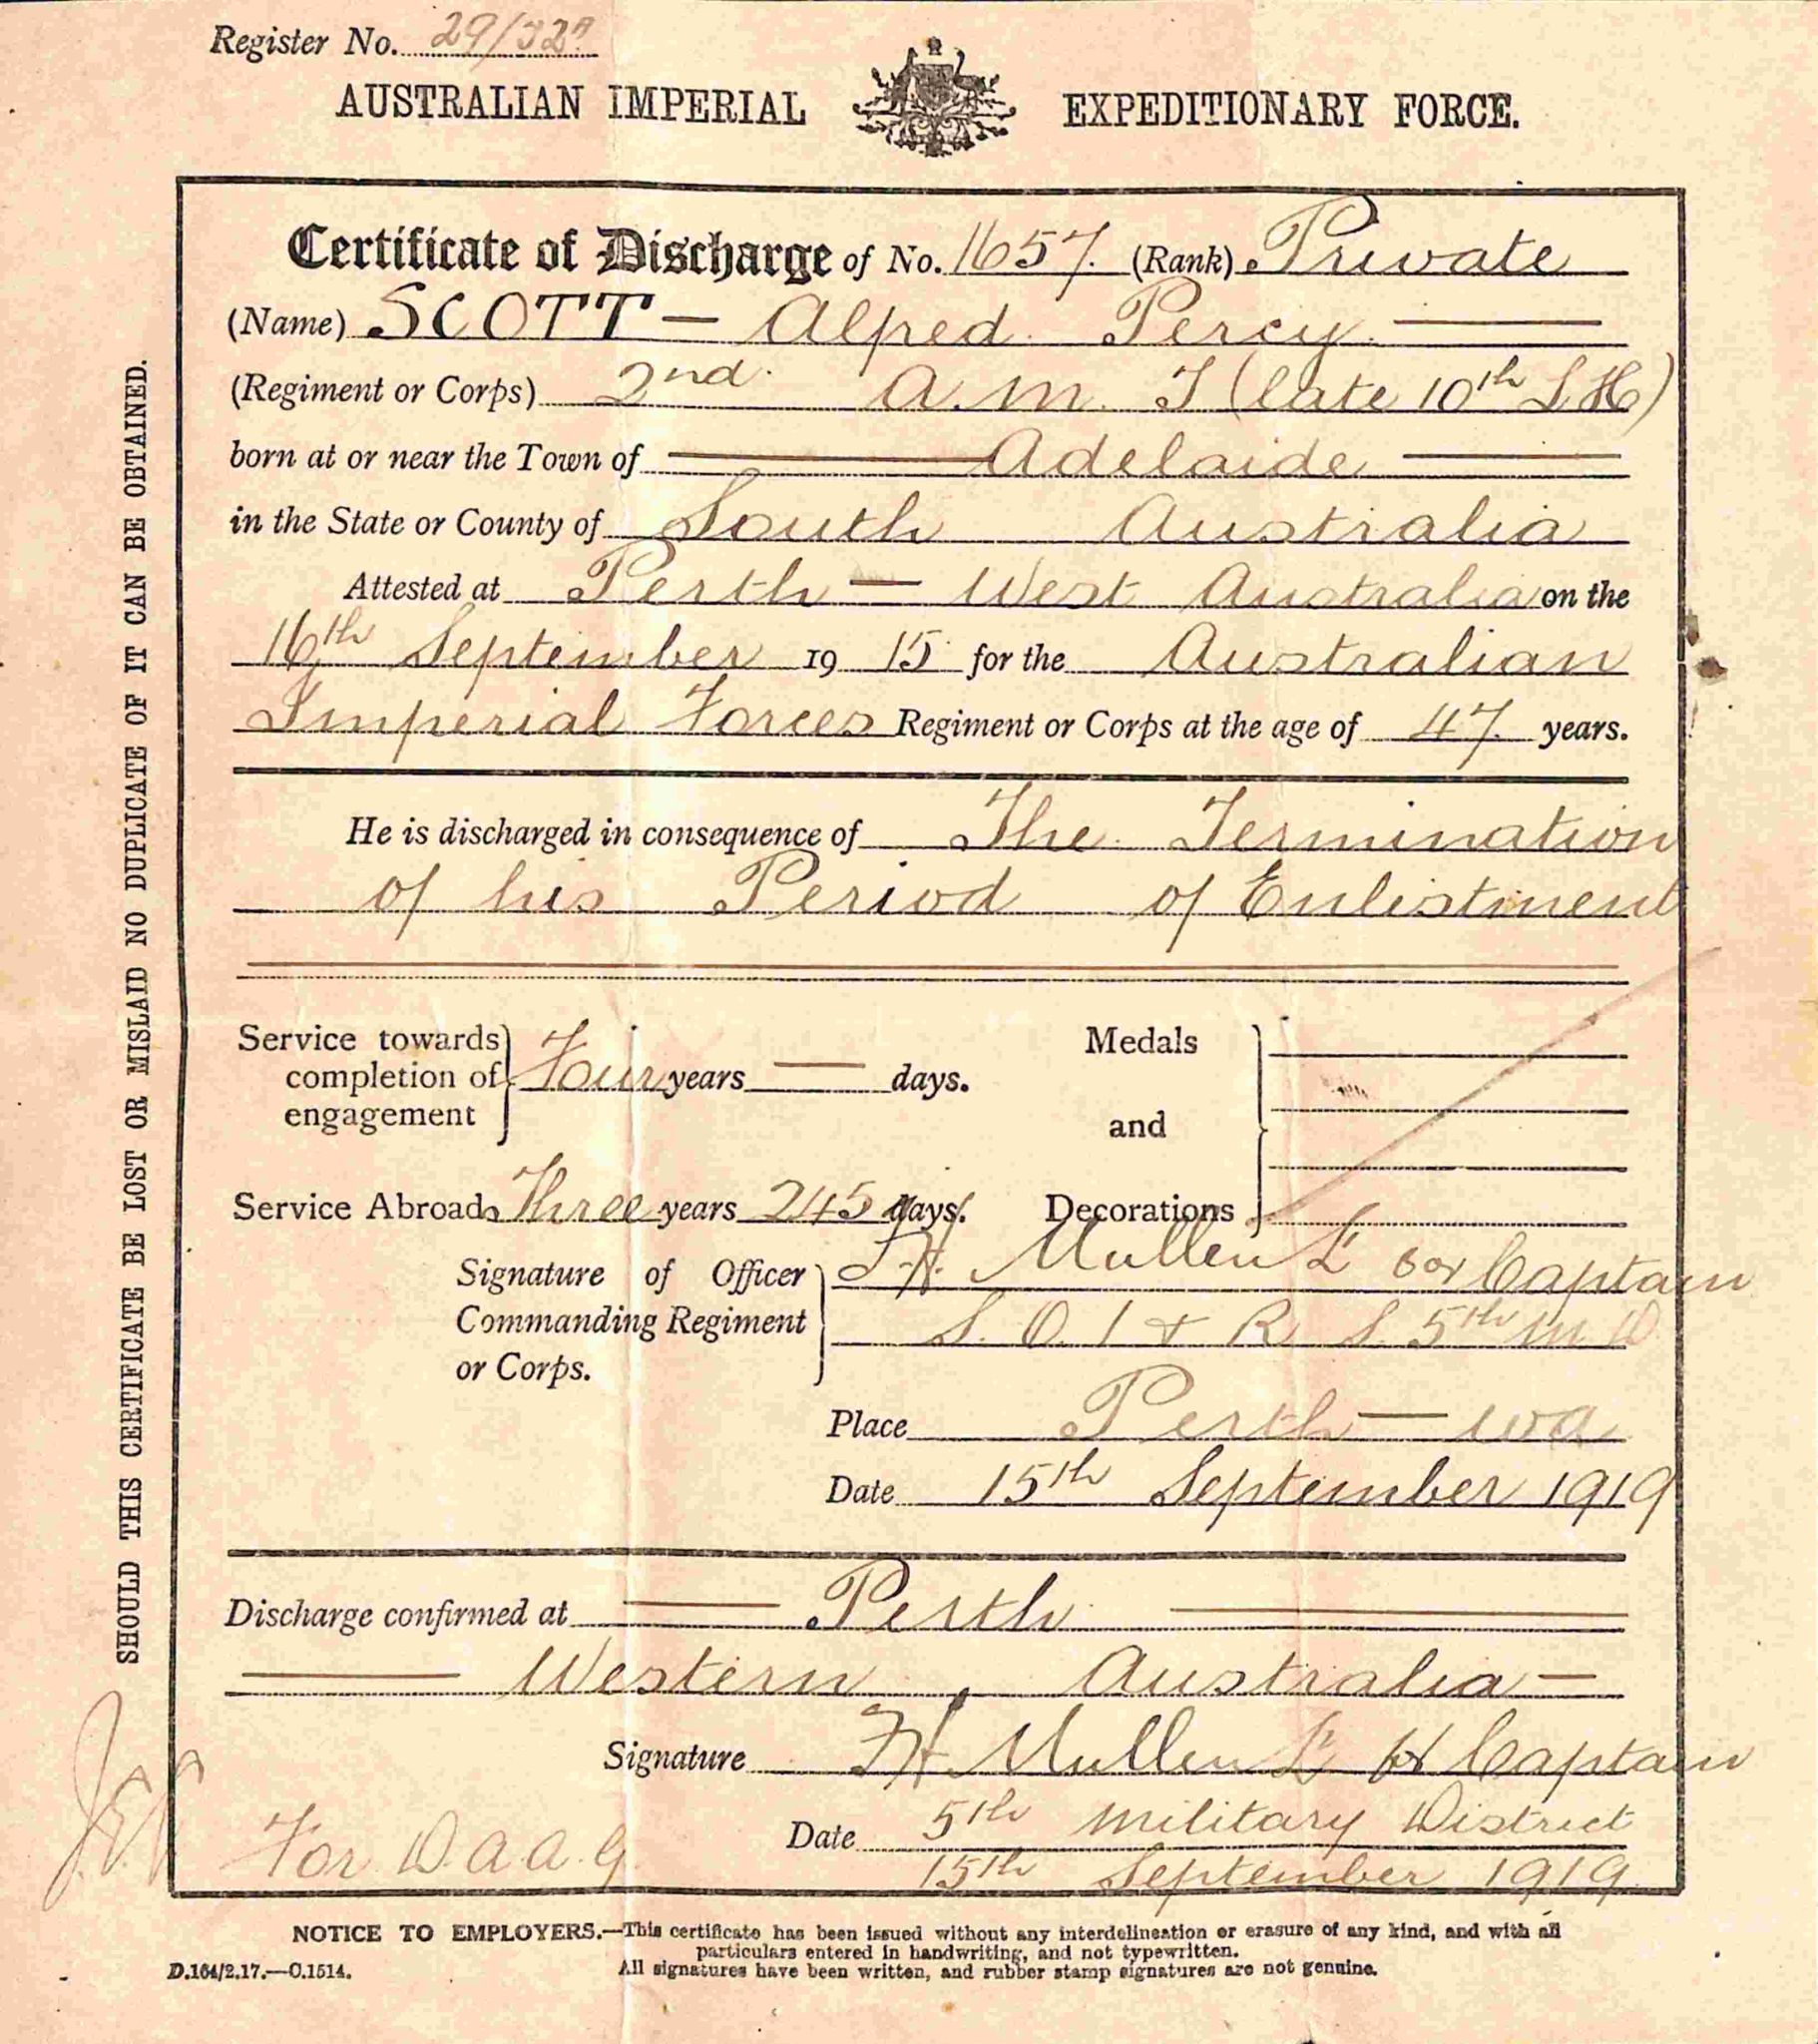 Register No. 29/32
AUSTRALIAN IMPERIAL EXPEDITIONARY FORCE.
Certificate of Discharge of No. 1657. (Rank) Private
(Name) SCOTT — Alfred Percy
(Regiment or Corps) 2nd A.M. T (late 10th LH)
born at or near the Town of Adelaide
in the State or County of South Australia
Attested at Perth — West Australia on the
16th September 1915 for the Australian
Imperial Forces Regiment or Corps at the age of 47 years.
He is discharged in consequence of The Termination
of his Period of Enlistment
Service towards completion of engagement Four years — days.
Service Abroad Three years 245 days.
Medals and Decorations
Signature of Officer Commanding Regiment or Corps.
H. Mullen Lt for Captain
S. O. I & R S 5th M D
Place Perth — WA
Date 15th September 1919
Discharge confirmed at Perth
Western Australia —
Signature H Mullen Lt for Captain
5th Military District
Date 15th September 1919
For D.A.A.G
SHOULD THIS CERTIFICATE BE LOST OR MISLAID NO DUPLICATE OF IT CAN BE OBTAINED.
NOTICE TO EMPLOYERS.—This certificate has been issued without any interdelineation or erasure of any kind, and with all
particulars entered in handwriting, and not typewritten.
D.164/2.17.—C.1514.
All signatures have been written, and rubber stamp signatures are not genuine.